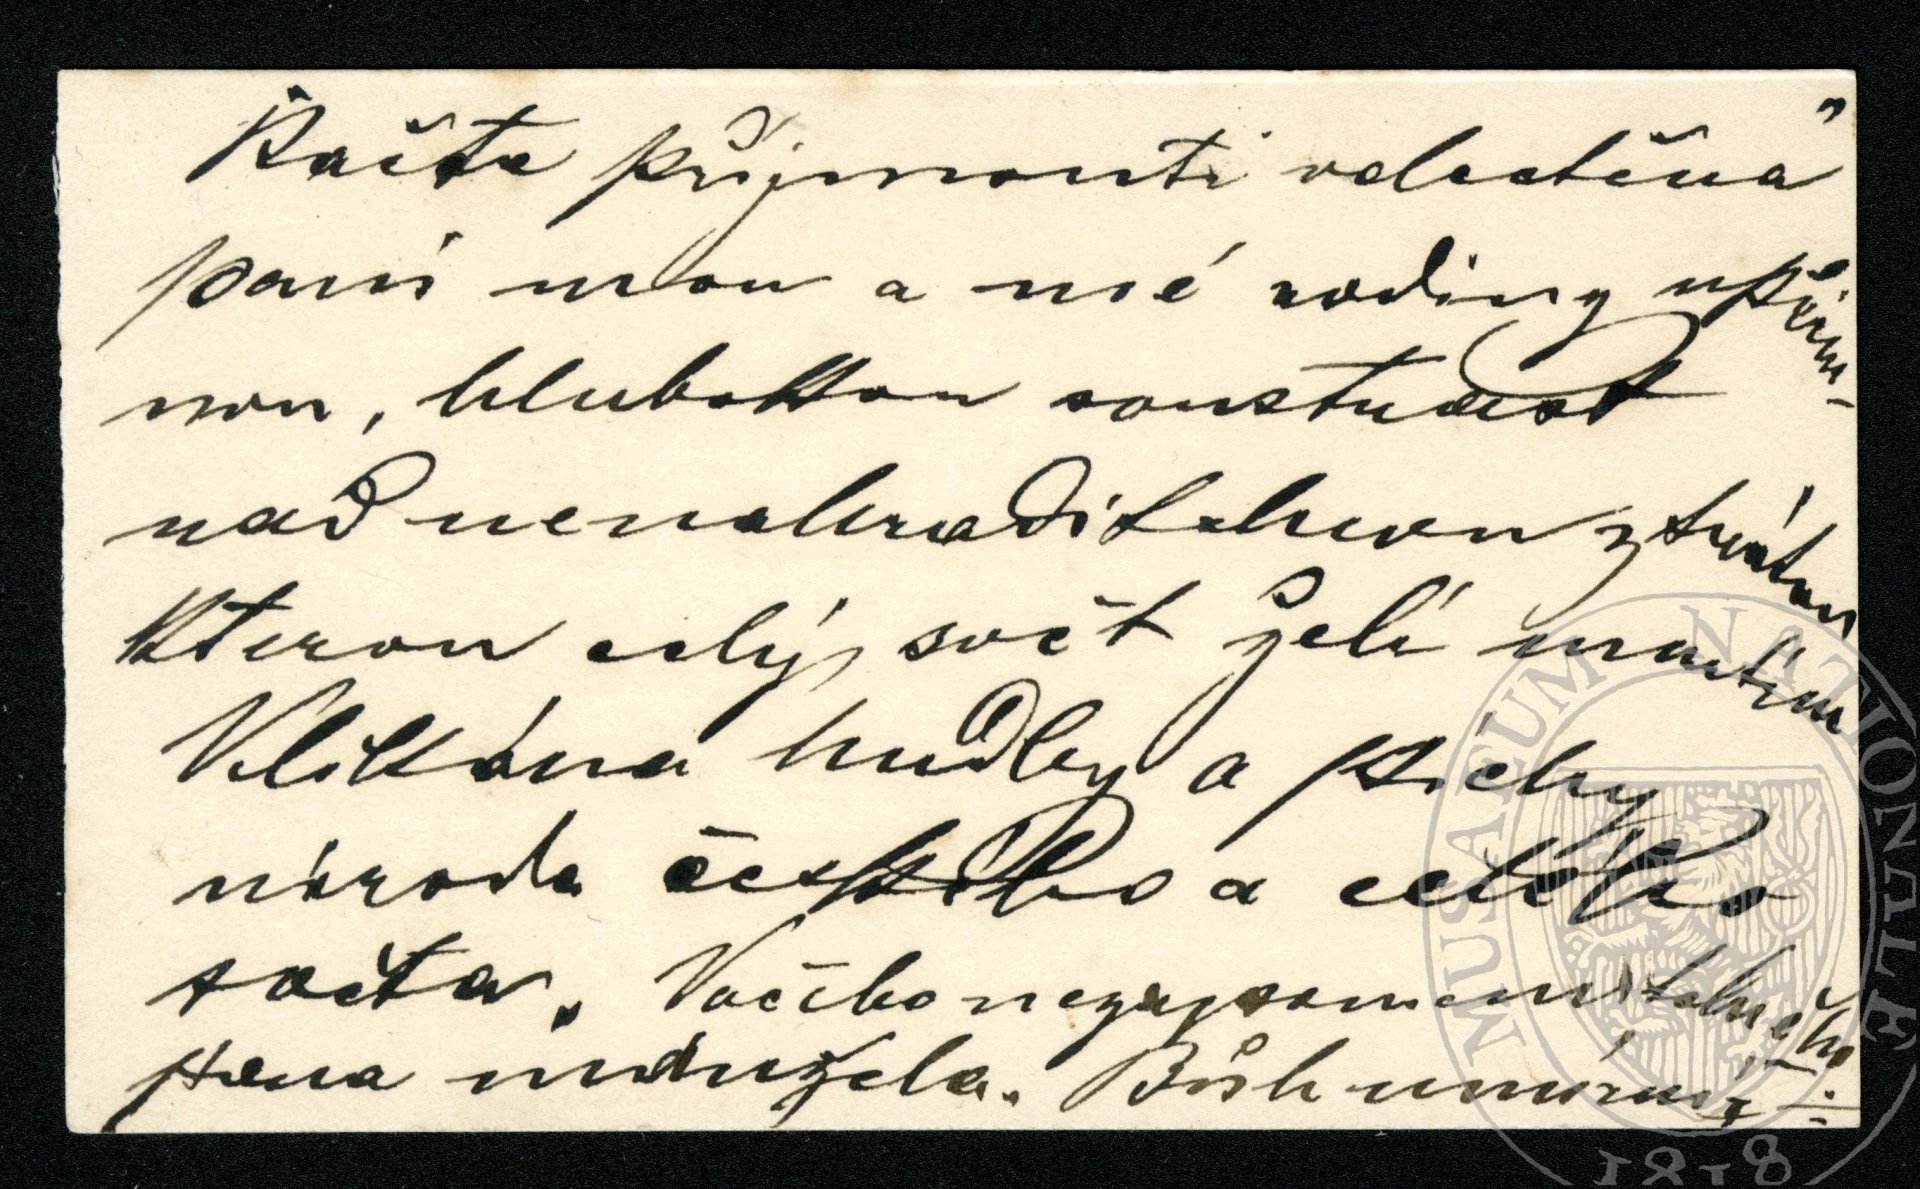 Račte přijmouti velectěná
paní mou a mé rodiny upřím-
nou, hlubokou soustrast
nad nenahraditelnou ztrátou
kterou celý svět želí úmrtím
Velikána hudby a pýchy
národa českého a celého
světa. Vašeho nezapomenutelného
pana manžela. Bůh umírni
MUSAEUM NATIONALE
1818